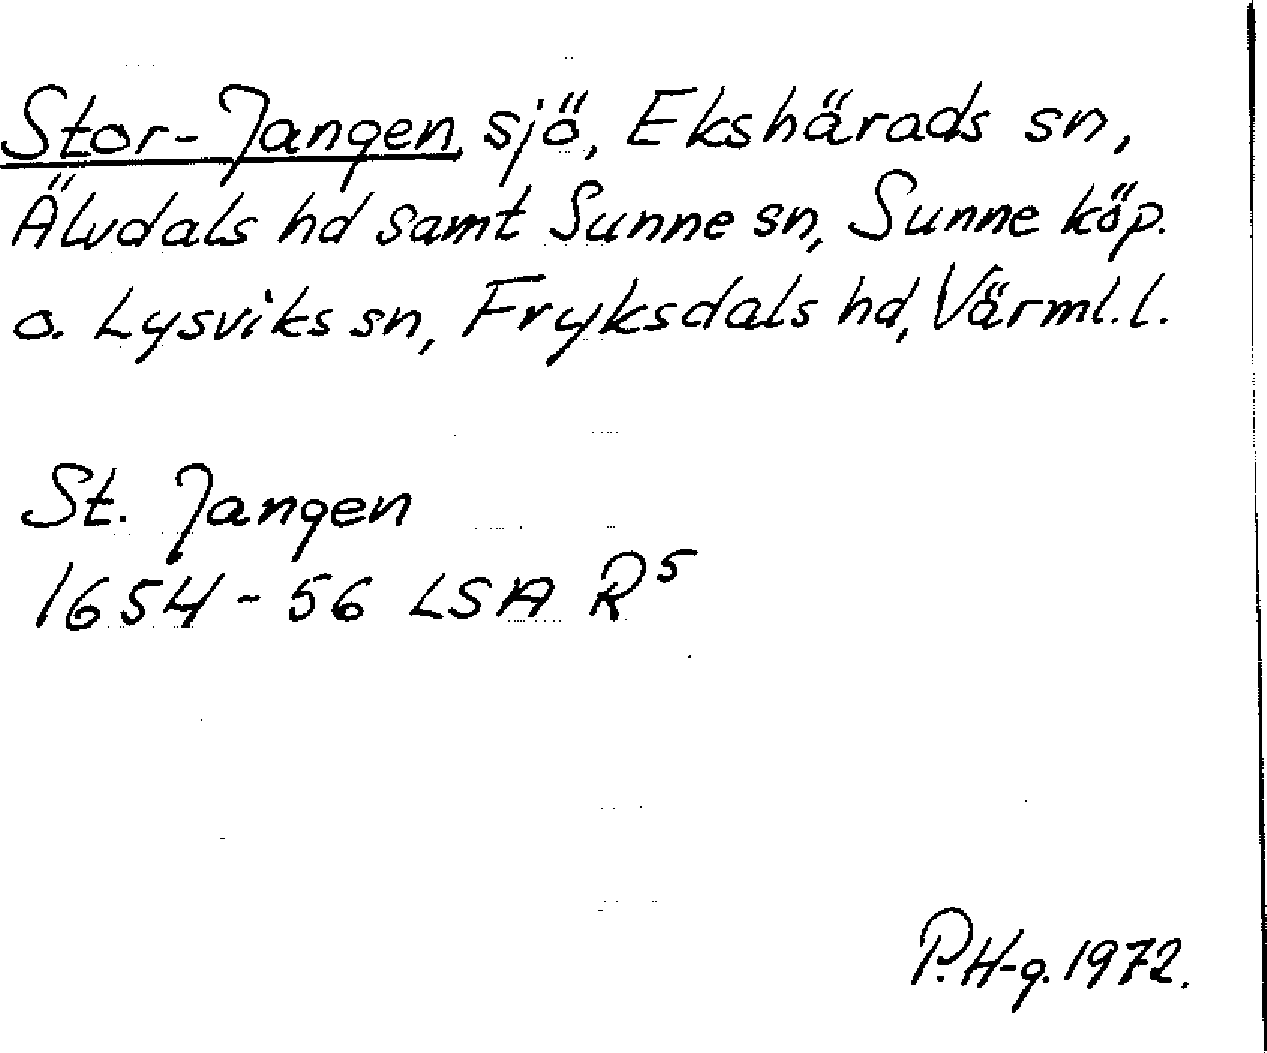 Stor-Jangen, sjö, Ekshärads sn,
Älvdals hd samt Sunne sn, Sunne köp.
o. Lysviks sn, Fryksdals hd, Värml. l.
St. Jangen
1654-56 LSA R⁵
P. H-g. 1972.